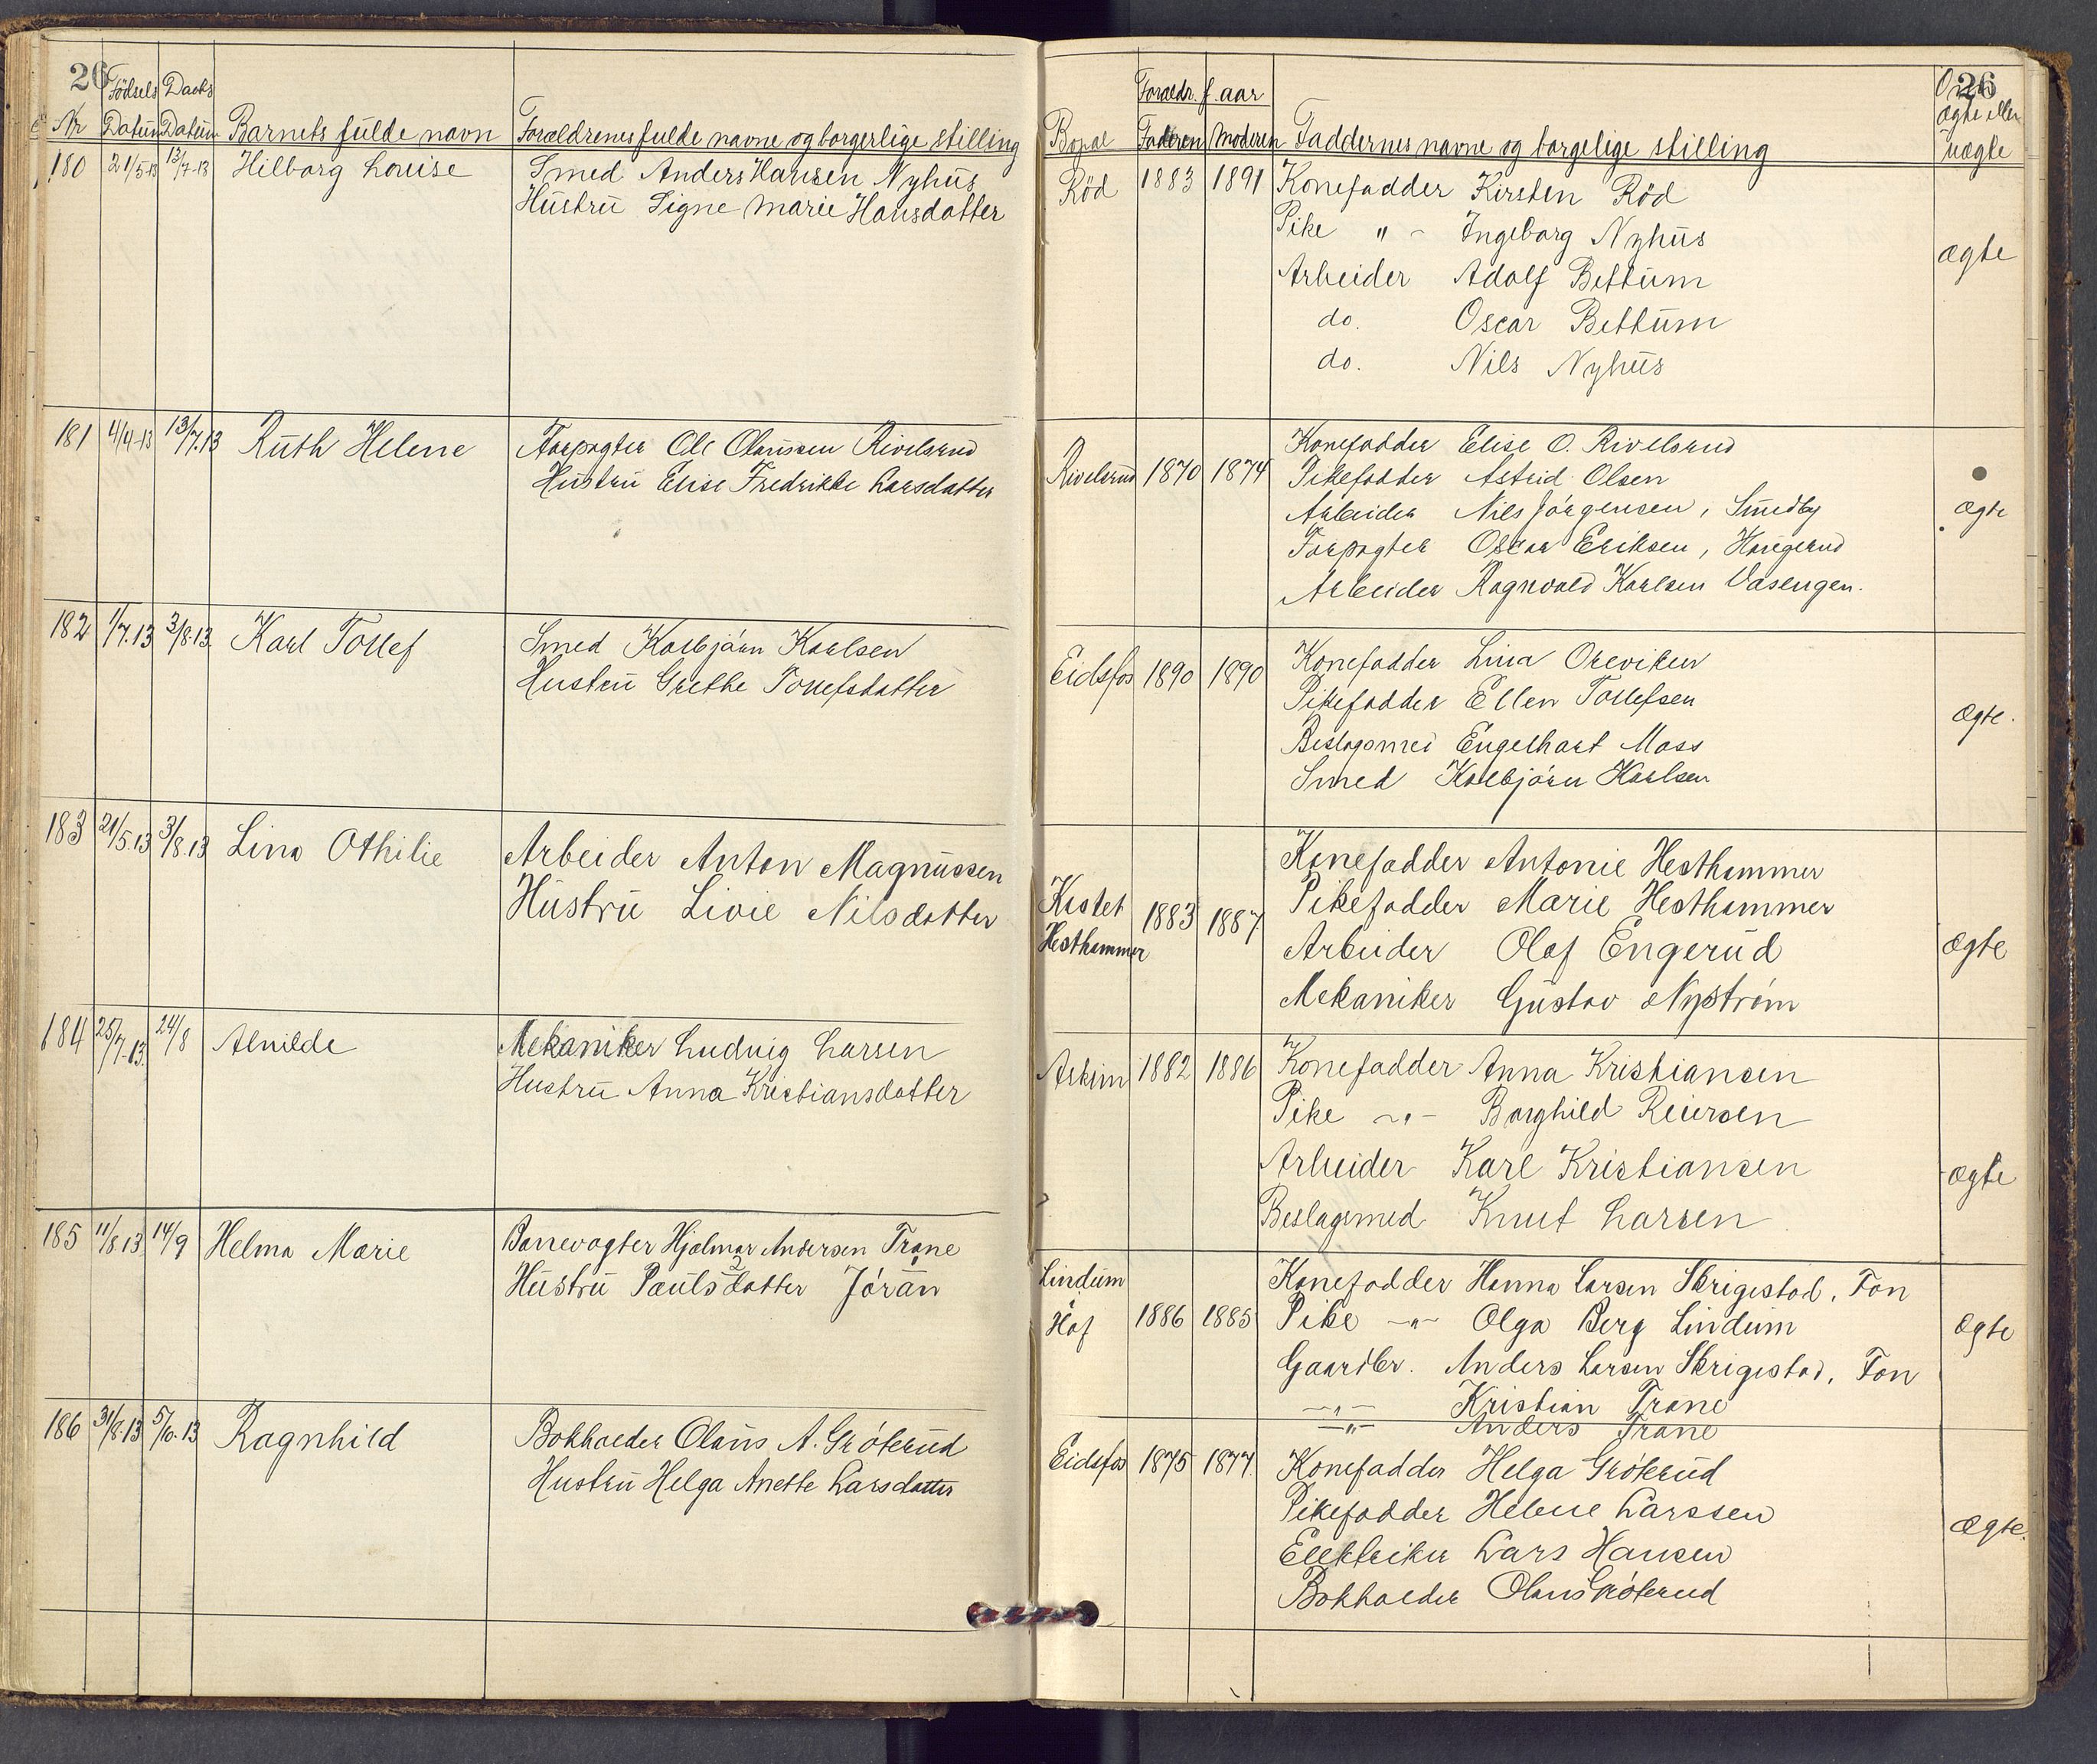 26
Födsels Daabs
Nr Datum Datum Barnets fulde navn Forældrenes fulde navne og borgerlige stilling
180 21/5-13 13/7-13 Hilborg Louise Smed Anders Hansen Nyhus
Hustru Signe Marie Hansdatter
181 4/4-13 13/7.13 Ruth Helene Forpagter Ole Olaussen Rivelsrud
Hustru Elise Fredrikke Larsdatter
182 1/7.13 3/8.13. Karl Tollef Smed Kolbjörn Karlsen
Hustru Grethe Tollefsdatter
183 21/5.13 3/8.13 Lina Othilie Arbeider Anton Magnussen
Hustru Livie Nilsdatter
184 25/7-13. 24/8 Alvilde Mekaniker Ludvig Larsen
Hustru Anna Kristiansdatter
185 11/8.13. 14/9 Helma Marie Banevogter Hjalmar Andersen Trane
Hustru Paulsdatter Jöran
186 31/8.13 5/10.13 Ragnhild Bokholder Olaus A. Gröterud
Hustru Helga Anette Larsdatter
26
Foreldr. f. aar
Bopæl Faderen Moderen Faddernes navne og borgelige stilling
ægte eller
uægte
Röd 1883 1891 Konefadder Kirsten Röd
Pike " - Ingeborg Nyhus
ægte
Arbeider Adolf Bettum
do. Oscar Bettum
do. Nils Nyhus
Konefadder Elise O. Rivelsrud
Rivelsrud 1870 1874 Pikefadder Astrid Olsen
Arbeider Nils Jörgensen, Smedby
ægte
Forpagter Oscar Eriksen, Haugerud
Arbeider Ragnvald Karlsen Vasengen.
Eidsfos 1890 1890 Konefadder Lina Oreviken
Pikefadder Ellen Tollefsen
ægte.
Engelhart Moss
Smed Kolbjörn Karlsen
Konefadder Antonie Hesthammer
Kastet 1883 1887 Pikefadder Marie Hesthammer
Hesthammer Arbeider Olaf Engerud
ægte
Mekaniker Gustav Nyström
Askim 1882 1886 Konefadder Anna Kristiansen
Pike -"- Borghild Reiersen
Arbeider Karl Kristiansen
ægte
Beslagsmed Knut Larsen
Lindum Konefadder Hanna Larsen Skrigestad, Fon
Hof 1886 1885 Pike -"- Olga Berg Lindum
ægte
Gaardbr. Anders Larsen Skrigestad, Fon
-"- Kristian Trane
-"- Anders Trane
Eidsfos 1875 1877. Konefadder Helga Gröterud
Pikefadder Helene Larssen
ægte.
Elektriker Lars Hansen
Bokholder Olaus Gröterud